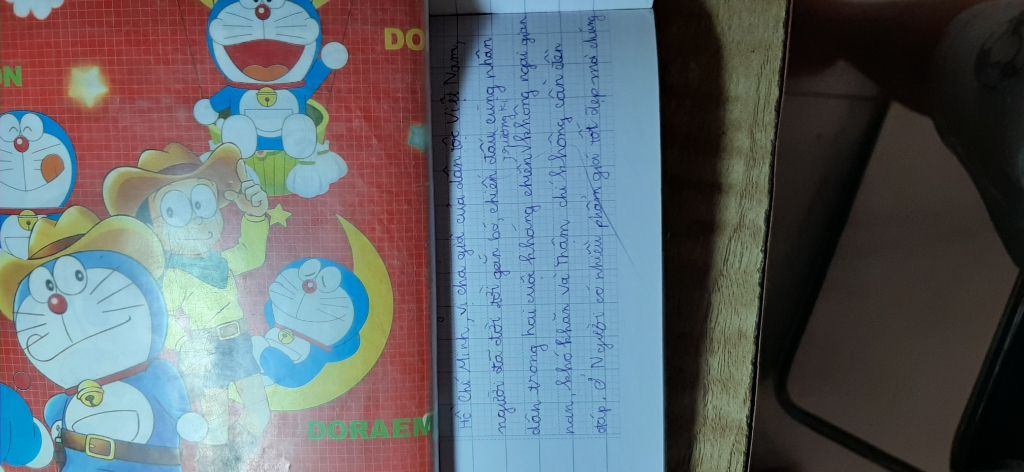 DO
ON
DORAEM
Hồ Chí Minh, vị cha già của dân tộc Việt Nam,
người đã đời đời gắn bó, chiến đấu cùng nhân
dân trong hai cuộc kháng chiến trường kì không ngại gian
nan, khó khăn và thậm chí không cần đền
đáp. Ở Người có nhiều phẩm giá tốt đẹp mà chúng